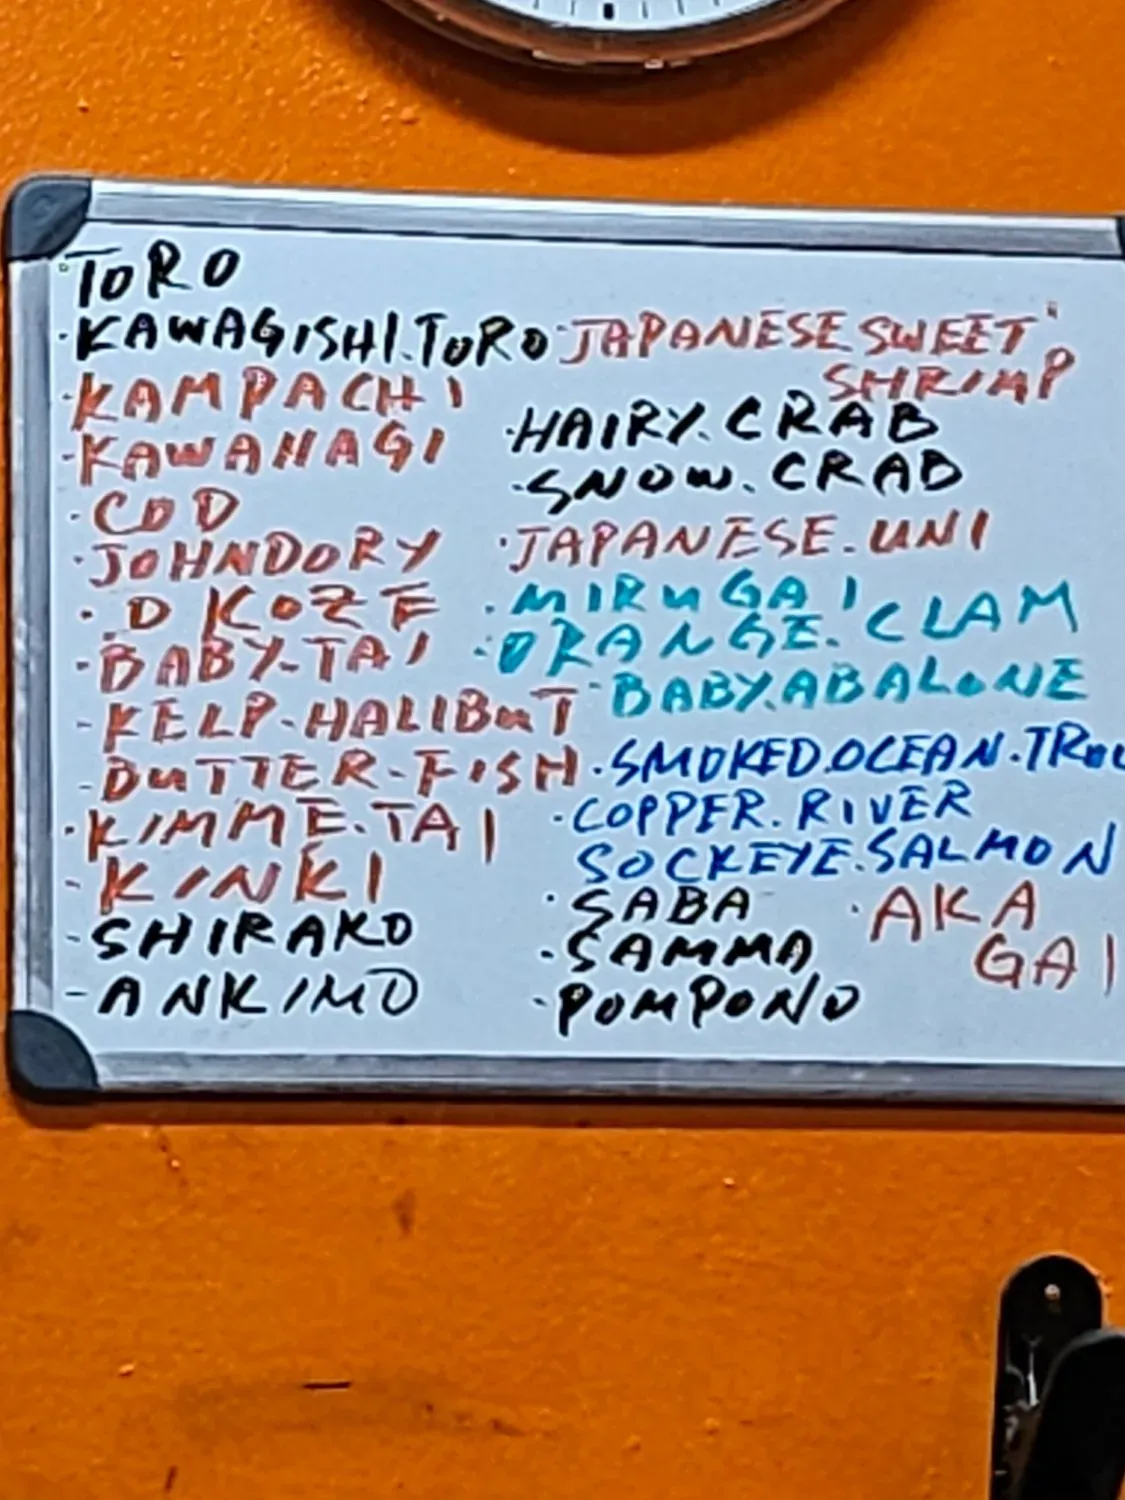 TORO
·KAWAGISHI.TORO
·KAMPACHI
-KAWAHAGI
·COD
·JOHNDORY
·.OKOZE
-BABY.TAI
-KELP-HALIBUT
-BUTTER-FISH
·KIMME.TAI
-KINKI
-SHIRAKO
-ANKIMO
·JAPANESE.SWEET
SHRIMP
·HAIRY.CRAB
·SNOW.CRAB
·JAPANESE.UNI
·MIRUGAI CLAM
·ORANGE.
·BABY.ABALONE
·SMOKED.OCEAN.
·COPPER.RIVER
SOCKEYE.SALMON
·SABA
·SAMMA
·POMPONO
·AKA
GAI